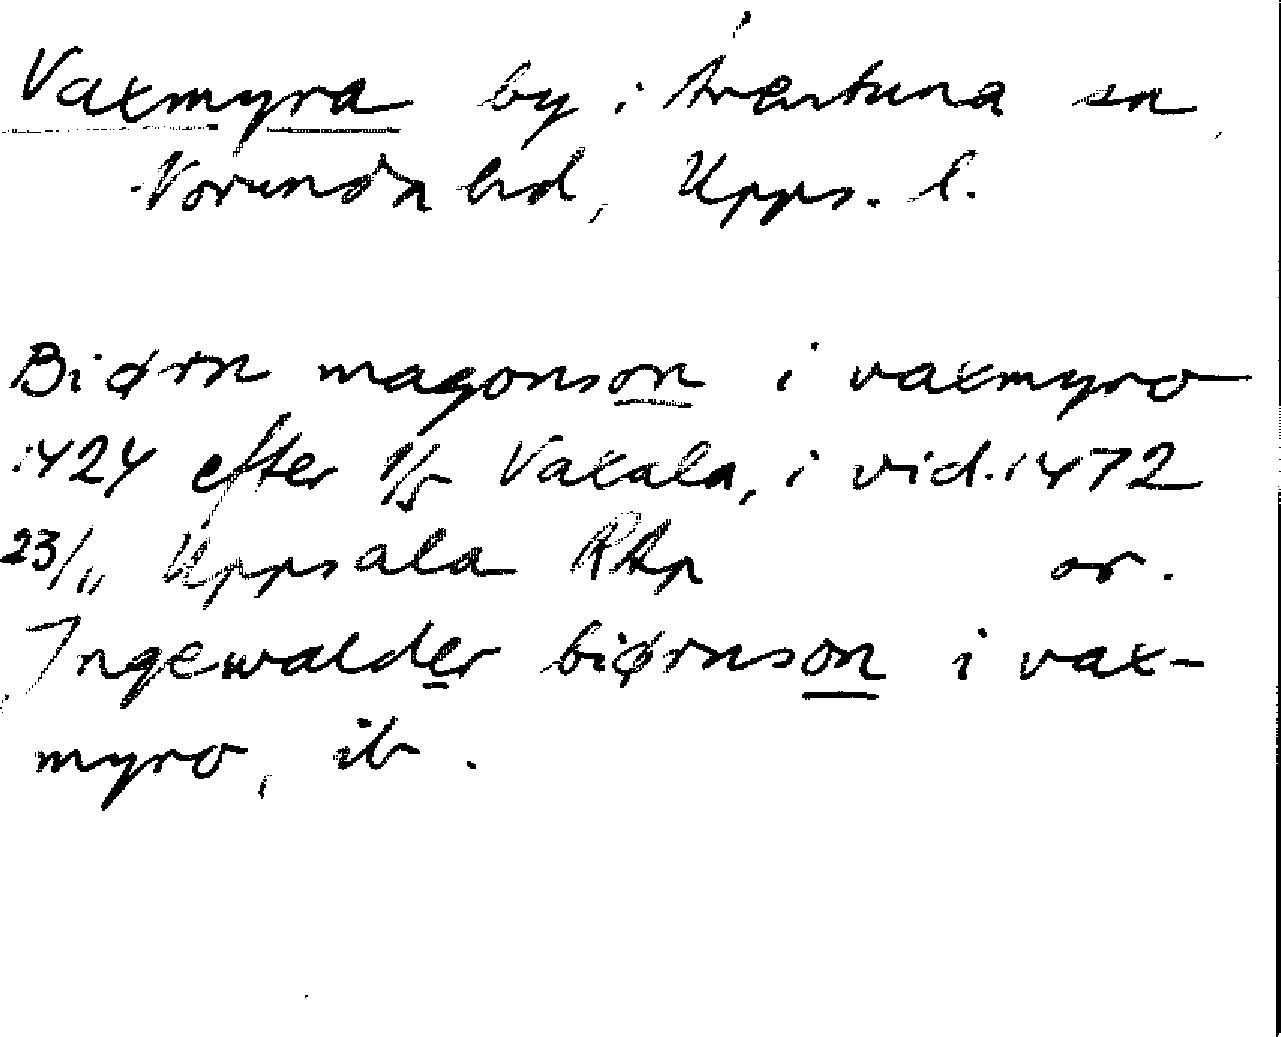 Vaxmyra by i Årentuna sn,
Norunda hd, Upps. l.
Biørn magonson i vaxmyro
1424 efter 1/5 Vaxala, i vid. 1472
23/11 Uppsala RAp or.
Ingewalder biørnson i vax-
myro, ib.